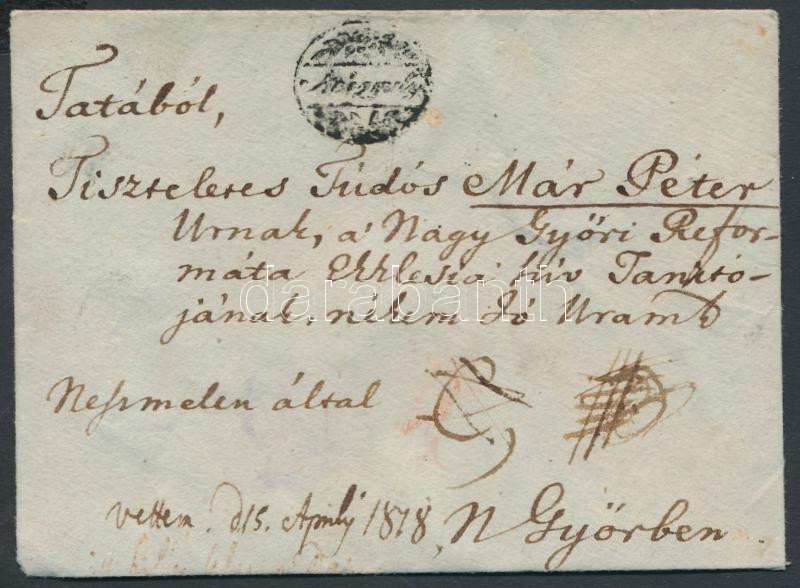 Tatából,
Tiszteletes Túdós Már Péter
Urnak, a' Nagy Győri Refor-
máta Ekklesia hív Tanító-
jának, nékem Jó Uram
darabanth
Neszmelen által
vettem. d 15. Aprily 1818
N Győrben